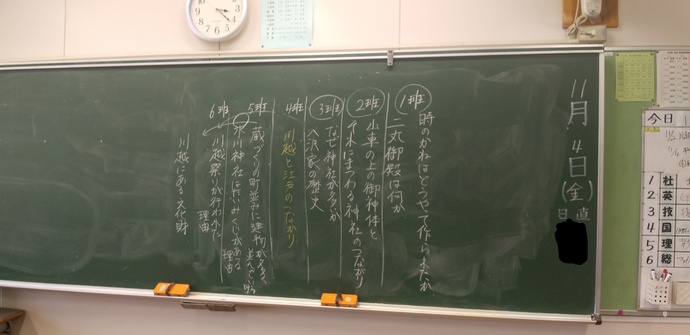 11月4日(金)
日直
1班
時のかねはどうやって作られたか
二丸御殿は何か
2班
山車の上の御神体と
それにまつわる神社のつながり
3班
なぜ神社が多いか
八沢家の歴史
4班
川越と江戸のつながり
5班
蔵づくりの町並みに建物が多く
並んでいる
理由
6班
氷川神社は
川越祭りが行われた
理由
川越にある文化財
今日
1 社
2 英
3 技
4 国
5 理
6 総